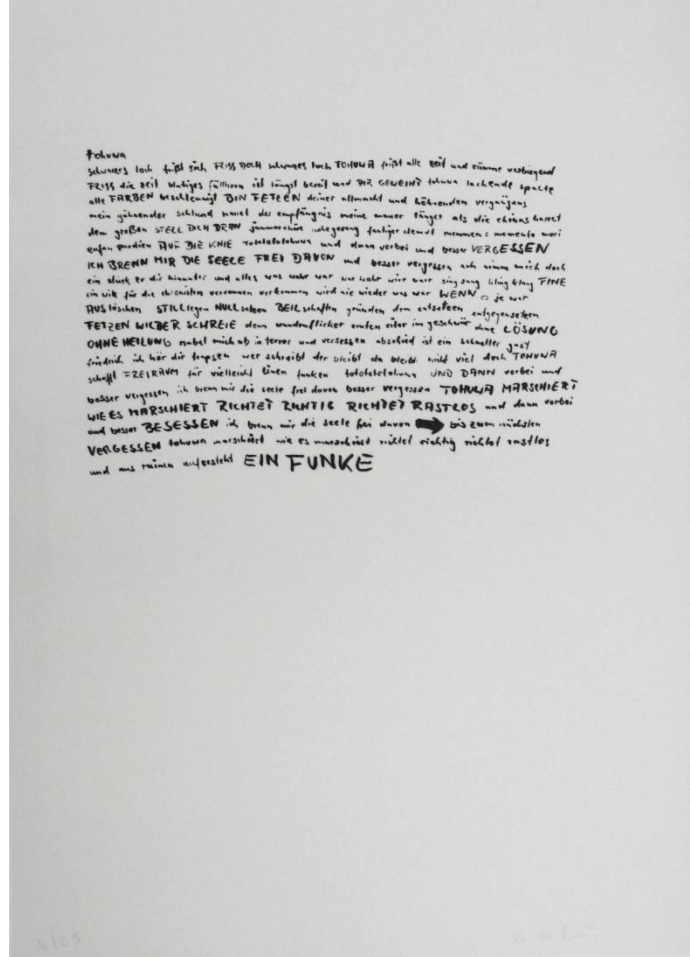 tohuwa
schwarzes loch frißt sich FRISS DOCH schwarzes loch TOHUWA frißt alle zeit und räume verbiegend
FRISS die zeit blutiges füllhorn ist längst bereit und DIR GEWEIHT tohuwa lachende spucke
alle FARBEN beschleunigt BIN FETZEN deiner allmacht und höhnenden vergnügens
mein gähnender schlund harret der empfängnis meine mauer länger als die chinas harret
dem großen STELL DICH DRAN demut memmen: memento mori
AUF DIE KNIE tototototohuwa und dann vorbei und besser VERGESSEN
ICH BRENN MIR DIE SEELE FREI DAVON und besser vergessen ach nimm mich doch
ein stück zu dir hinunter und alles was wahr war wo wahr wir war singsang kling klang FINE
ein witz für die chronisten verronnen verkommen wird nie wieder was war WENN es je war
AUSlöschen STILLlegen NULLsetzen BEILschaften gründen dem entsetzen entgegensetzen
FETZEN WILDER SCHREIE denn wundenflicker ernten eiter im geschwür ohne LÖSUNG
OHNE HEILUNG nabel mich ab in terror und versessen abschied ist ein schneller gast
friedrich ich hör dir trapsen wer schreibt der bleibt da bleibt nicht viel doch TOHUWA
schafft FREIRAUM für vielleicht einen funken totototototohuwa UND DANN vorbei und
besser vergessen ich brenn mir die seele frei davon besser vergessen TOHUWA MARSCHIERT
WIE ES MARSCHIERT RICHTET RICHTIG RICHTET RASTLOS und dann vorbei
und besser BESESSEN ich brenn mir die seele frei davon bis zum nächsten
VERGESSEN tohuwa marschiert wie es marschiert richtet richtig richtet rastlos
und aus ruinen aufersteht EIN FUNKE
4/25